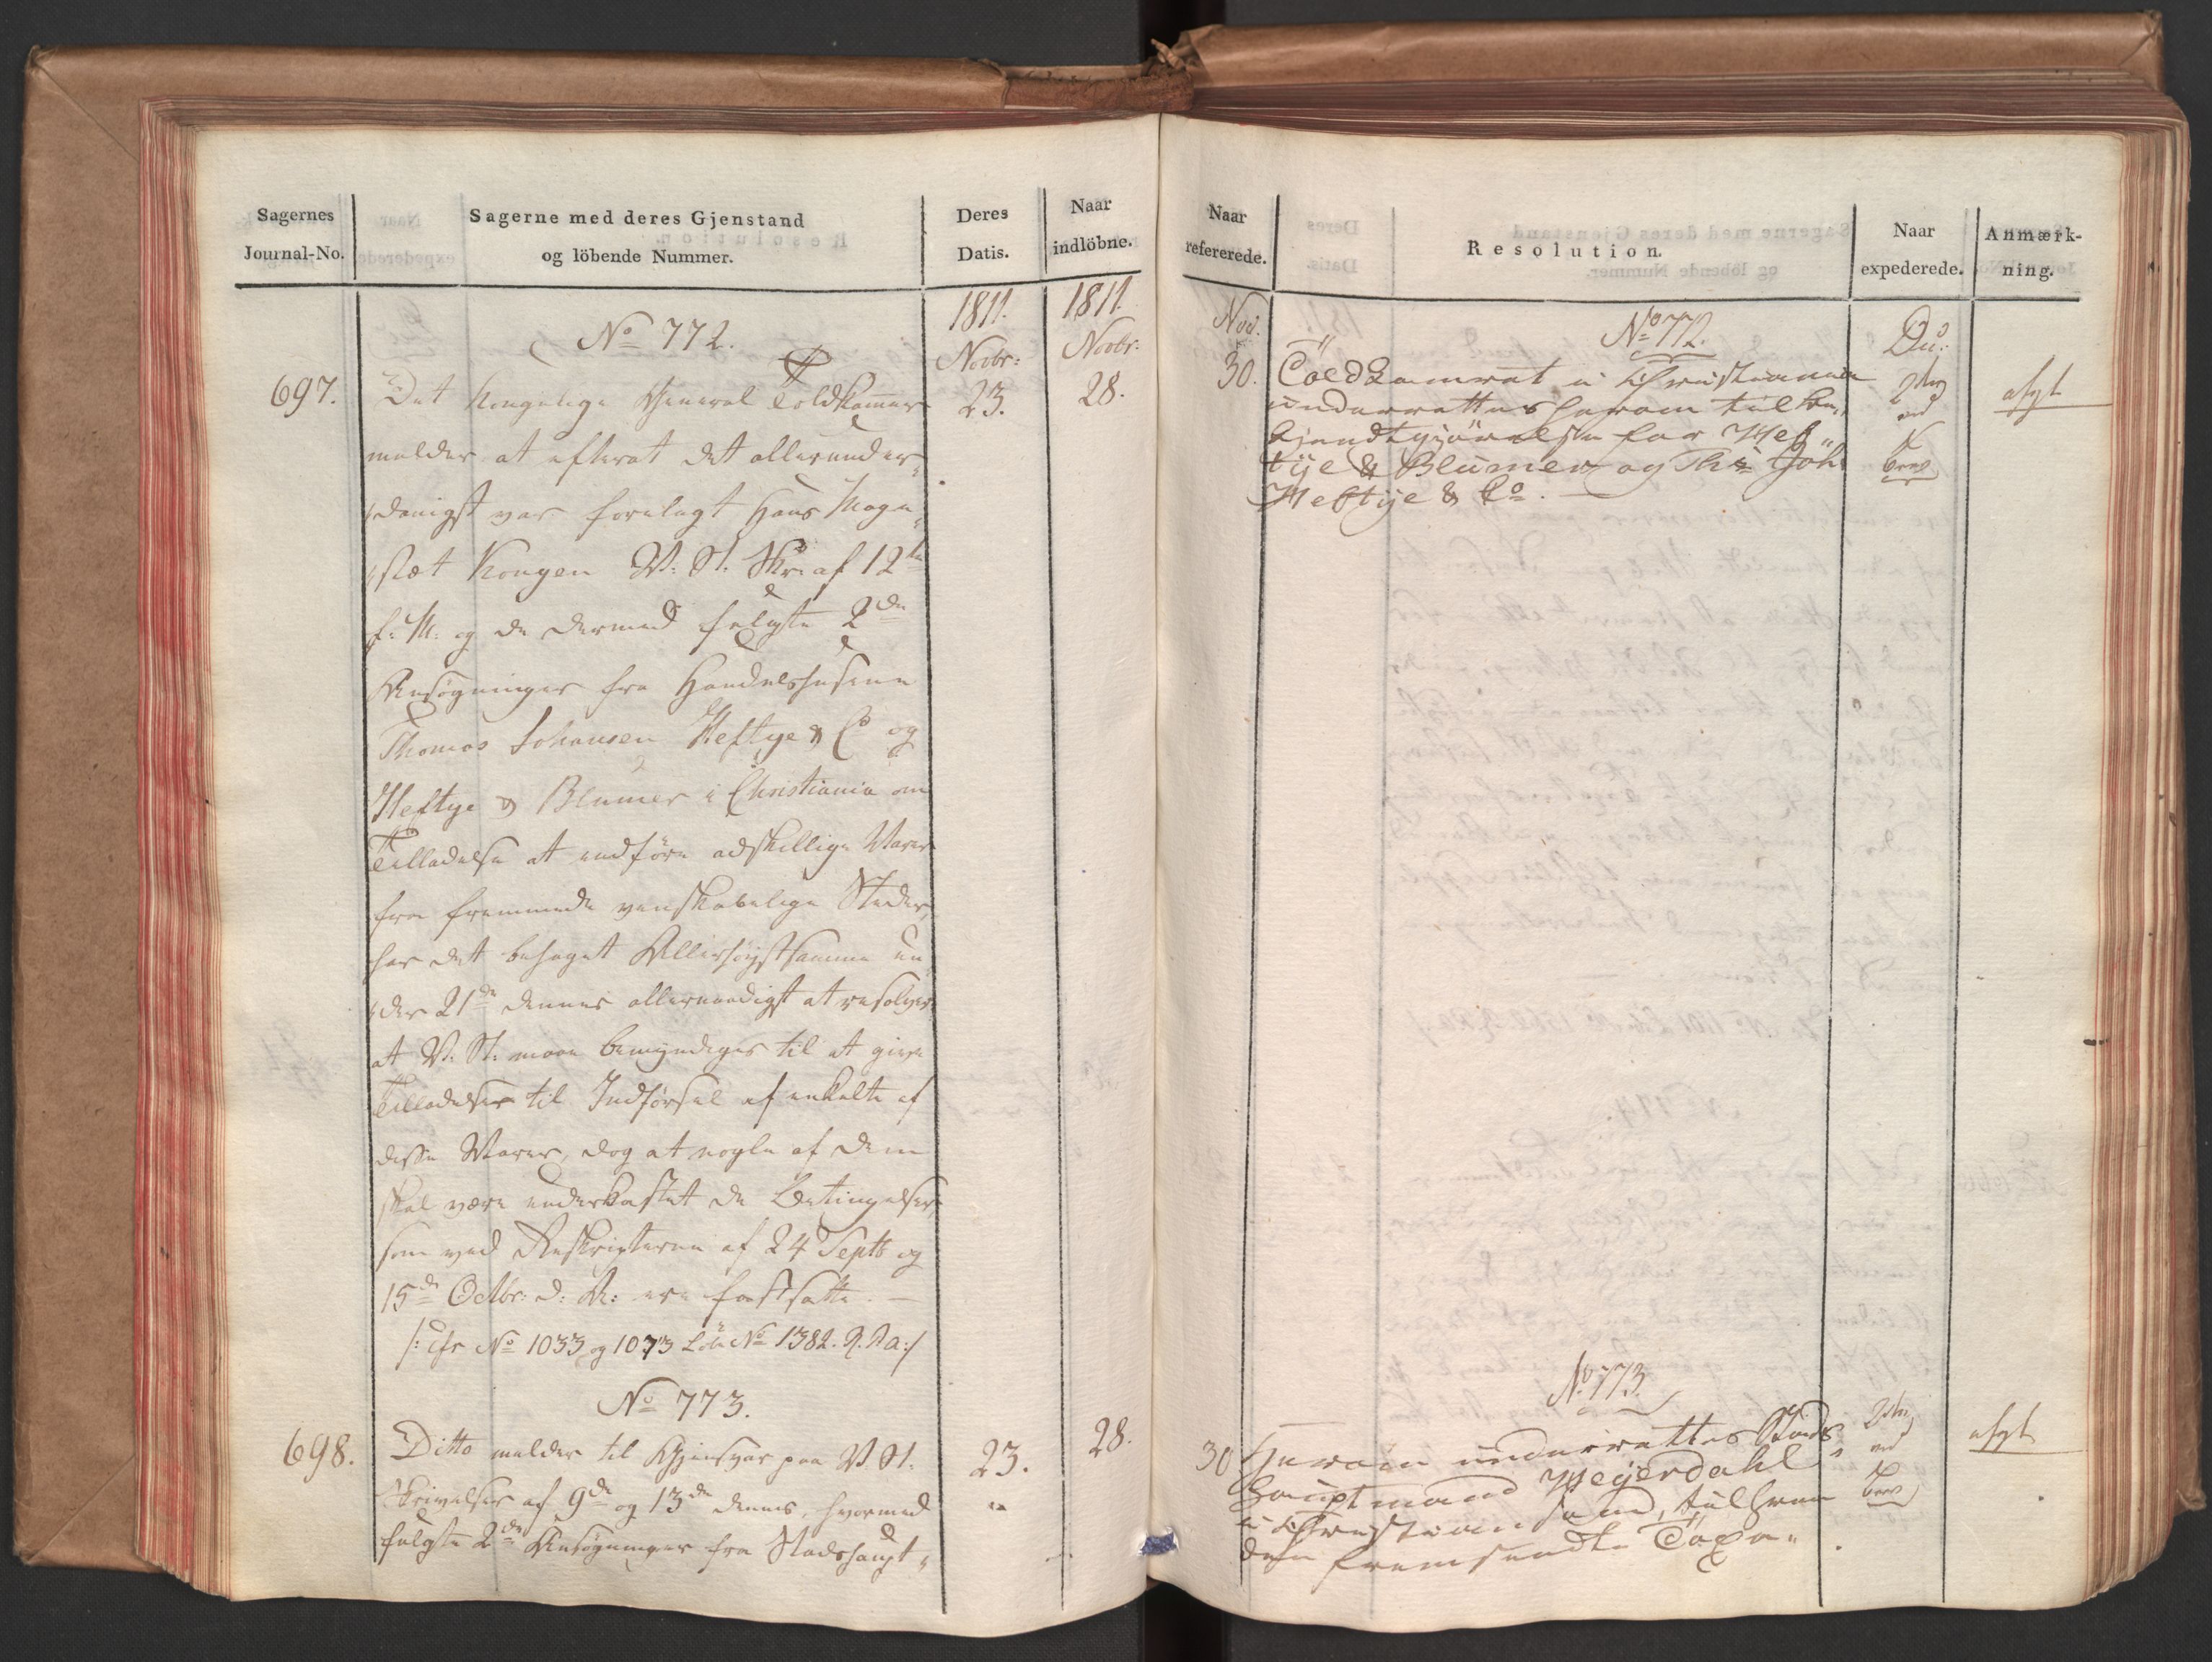 Sagernes
Journal-No.
Sagerne med deres Gjenstand
og löbende Nummer.
Deres
Datis.
Naar
indlöbne.
1811.
1811.
No 772.
Novbr:
Novbr:
697.
Det Kongelige General Toldkammer
23.
28.
melder at efterat det allerunder„
„danigst var forelagt Hans Maje„
„stæt Kongen V: St: Skr: af 12te
f: M: og de dermed fulgte 2de
Ansøgninger fra Handelshusene
Thomas Johansen Heftye & Co og
Heftye & Blumer i Christiania om
Tilladelse at indføre adskillige Varer
fra fremmede venskabelige Steder,
har det behaget Allerhøjstsamme un„
„der 21de dennes allernaadigst at resolvere
at V: St: maae bemyndiges til at give
Tilladelse til Indførsel af enkelte af
disse Varer, dog at nogle af dem
skal være underkastet de Betingelser
som ved Reskripterne af 24 Septb og
15de Octbr: d: A: ere fastsatte. —
/: cfr No 1033 og 1073 Lbe No 1382. R. Ra:/
No 773.
698.
Ditto melder til Gjensvar paa V St.
23.
28.
Skrivelser af 9de og 13de dennes, hvormed
fulgte 2de Ansøgninger fra Stadshaupt„
Naar
refererede.
Resolution.
Naar
expederede.
Anmærk-
ning.
Nov.
No 772.
Du:
30.
Toldkamret i Christiania
2den
afgt
underrettes herom til be„
kjendtgjørelse for Hef„
tye & Blumer og Ths Joh:
Brev
Heftye & Co. —
No 773.
30
Herom underrettes Stads„
afgt
hauptmand Heyerdahl
i Christiansand, tilligemed
Brev
den fremsendte Taxa„